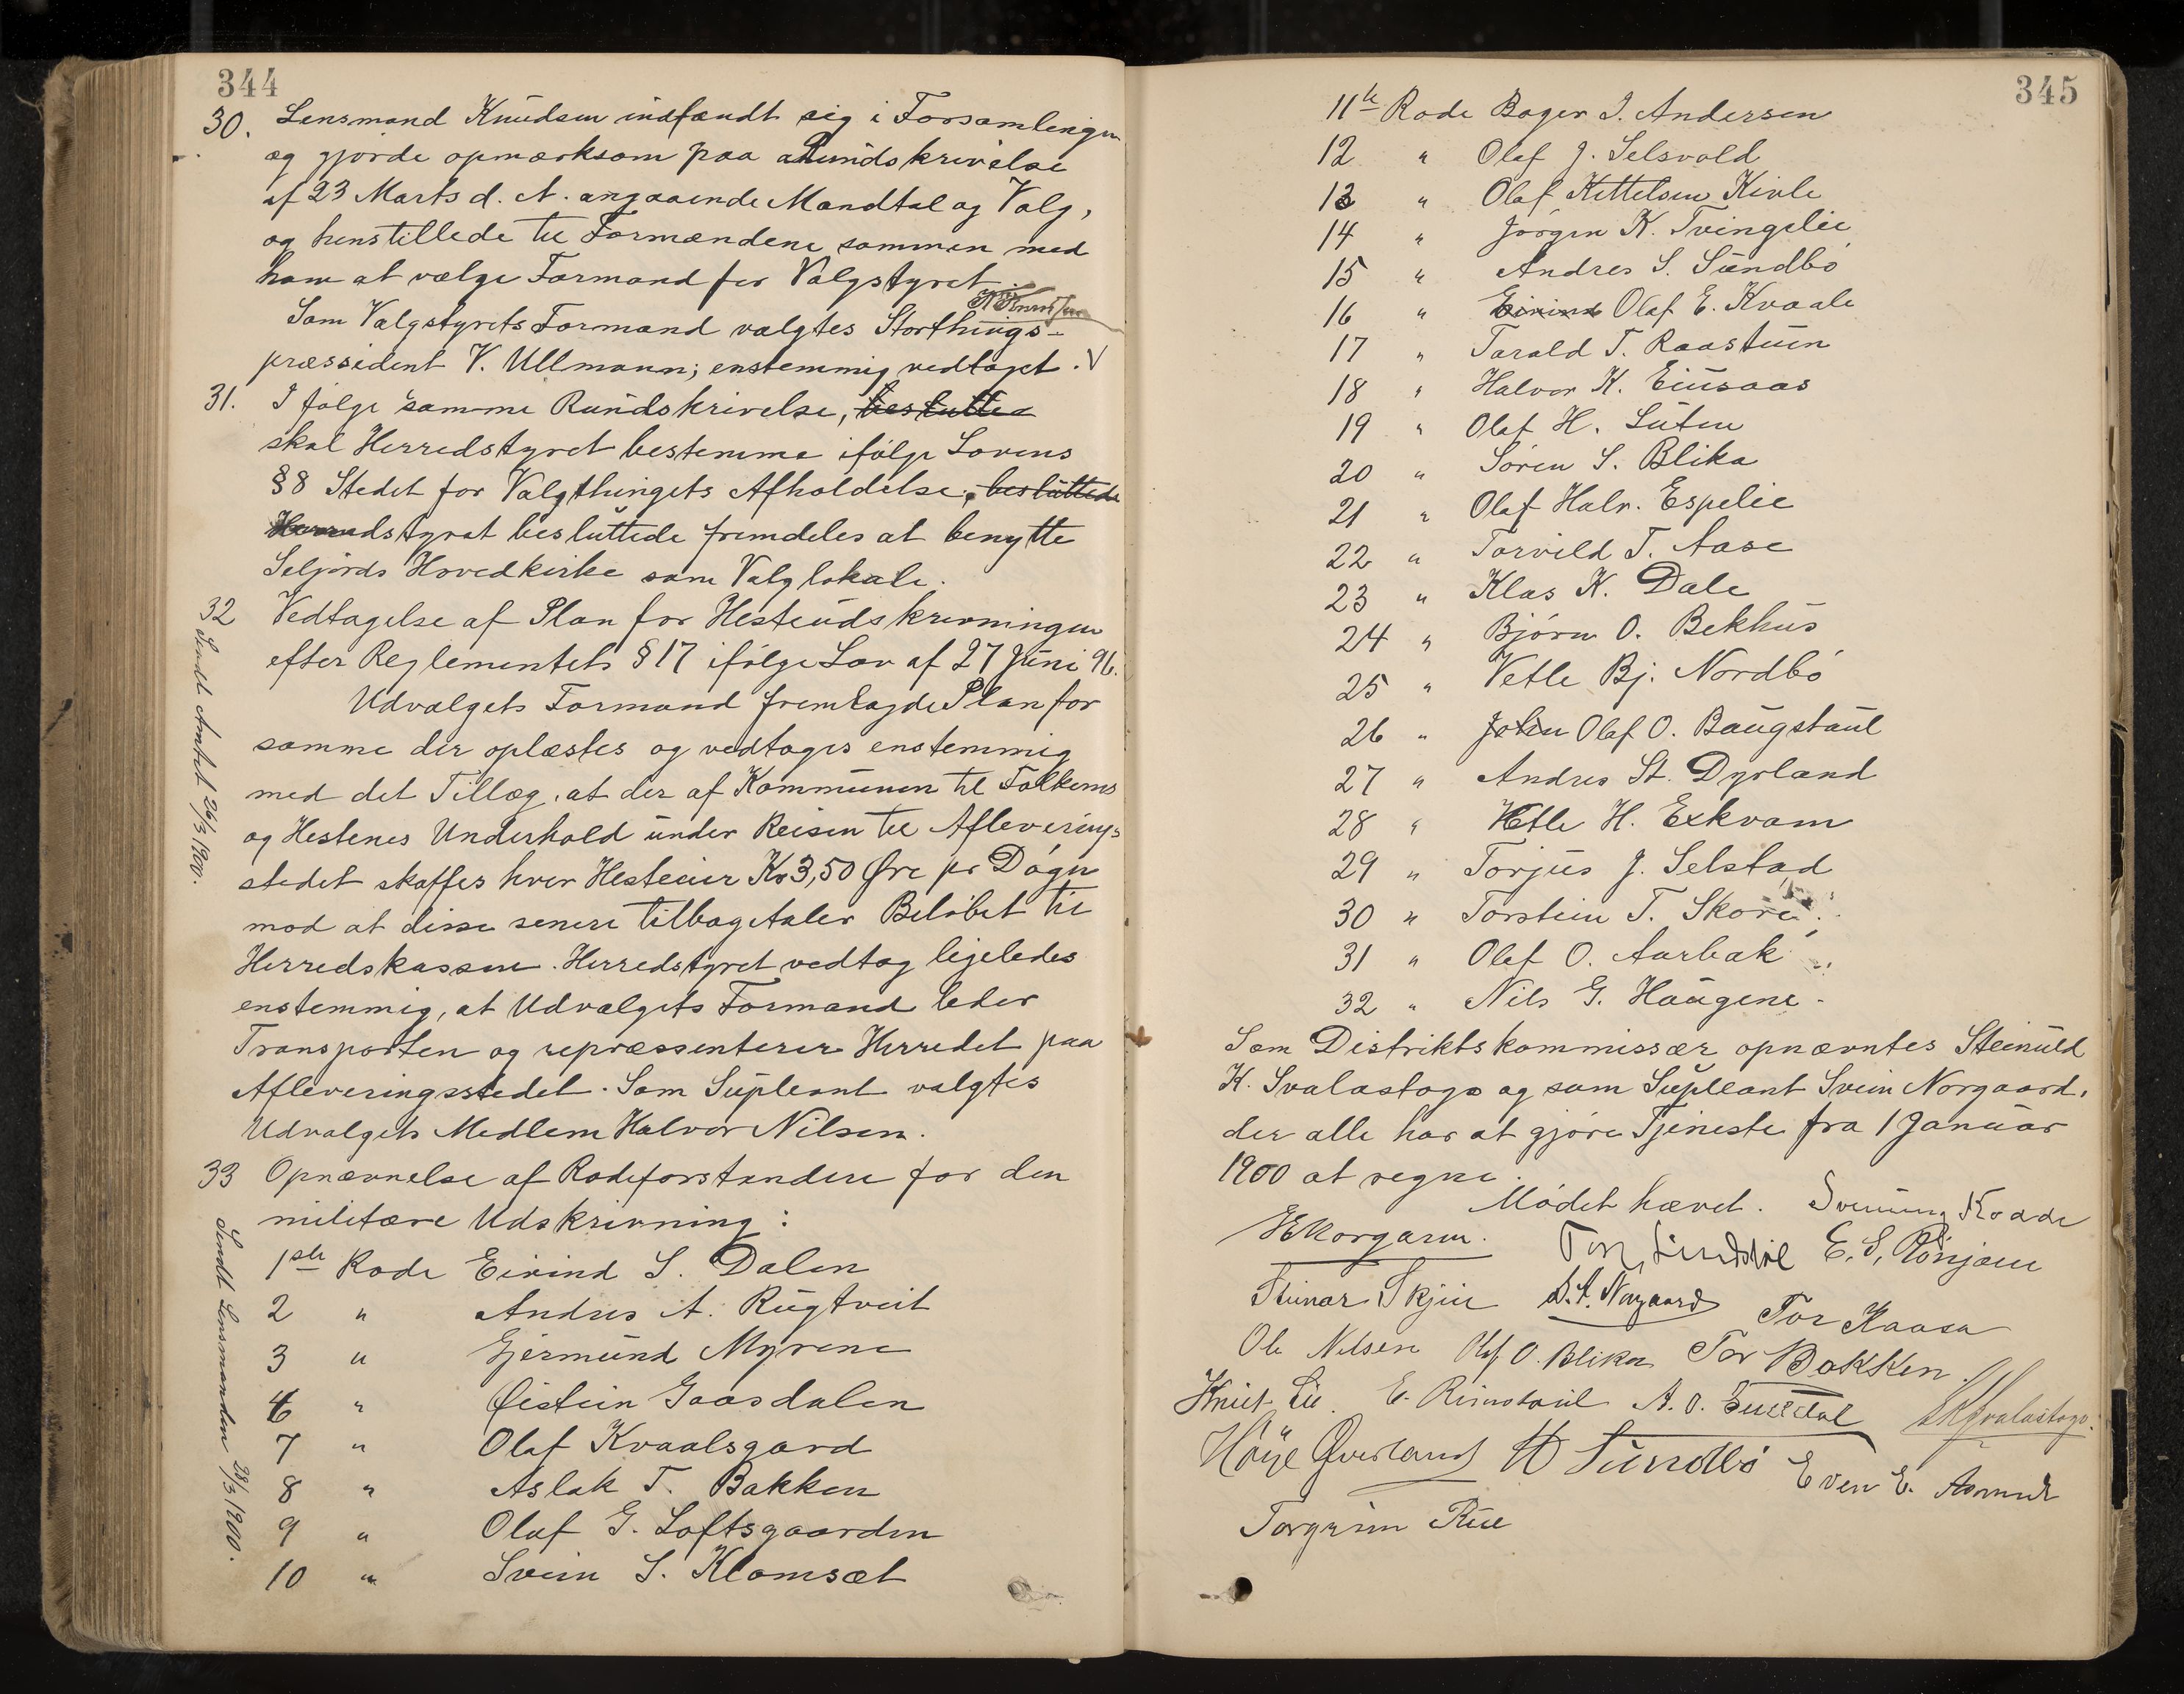 344
30. Lensmand Knudsen indfandt sig i Forsamlingen
og gjorde opmærksom paa Rundskrivelse
af 23 Marts d. A. angaaende Mandtal og Valg,
og henstillede til Formændene sammen med
ham at vælge Formand for Valgstyret
Som Valgstyrets Formand valgtes Storthings-
præssident V. Ullmann; enstemmig vedtaget.
31. I følge samme Rundskrivelse, besluttes
skal Herredstyret bestemme ifølge Lovens
§8 Stedet for Valgthingets Afholdelse, besluttede
Herredstyret besluttede fremdeles at benytte
Seljords Hovedkirke som Valglokale.
32 Vedtagelse af Plan for Hesteudskrivningen
efter Reglementets §17 ifølge Lov af 27 Juni 96.
Udvalgets Formand fremlagde Plan for
samme der oplæstes og vedtoges enstemmig
med det Tillæg, at der af Kommunen til Folkenes
og Hestenes Underhold under Reisen til Afleverings-
stedet skaffes hver Hesteeier Kr 3,50 Øre pr Døgn
mod at disse senere tilbagetaler Beløbet til
Herredskassen. Herredstyret vedtog ligeledes
enstemmig, at Udvalgets Formand leder
Transporten og repræssenterer Herredet paa
Afleveringsstedet. Som Supleant valgtes
Udvalgets Medlem Halvor Nilsen.
Sendt Amtet 26/3 1900.
33 Opnævnelse af Rodeforstandere for den
militære Udskrivning:
1ste Rode Eivind S. Dalen
2 " Andres A. Rugtveit
3 " Gjermund Myrene
6 " Øistein Gaasdalen
7 " Olaf Kvaalsgard
8 " Aslak T. Bakken
9 " Olaf G. Loftsgaarden
10 " Svein S. Klomsæt
Sendt Lensmanden 28/3 1900.
345
11te Rode Bager J. Andersen
12 " Olaf J. Selsvold
13 " Olaf Kittelsen Kivle
14 " Jørgen K. Tvingelie
15 " Andres S. Sundbø
16 " Eivind Olaf E. Kvaale
17 " Tarald T. Raastuen
18 " Halvor K. Eiusaas
19 " Olaf H. Luten
20 " Søren S. Blika
21 " Olaf Halv. Espelie
22 " Torvild T. Aase
23 " Klas K. Dale
24 " Bjørn O. Bekhus
25 " Vetle Bj. Nordbø
26 " John Olaf O. Baugstaul
27 " Andres St. Dyrland
28 " Vetle H. Ekvam
29 " Torjus J. Selstad
30 " Torstein T. Skore
31 " Olaf O. Aarbak
32 " Nils G. Haugene
Som Distriktskommissær opnævntes Steinuld
K. Svalastoga og som Supleant Svein Norgaard,
der alle har at gjøre Tjeneste fra 1 Januar
1900 at regne.
Mødet hævet. Svenung Kvaale
E. S. Rønjom
Steinar Skjin S. A. Norgaard Tor Kaasa
Ole Nilsen O. Blika Tor Bakken
Knut Lie E. Rimstoul A. O. Sundbø Svalastoga
Høye Øverland H Sundbø Even E.
Torgrim Rue